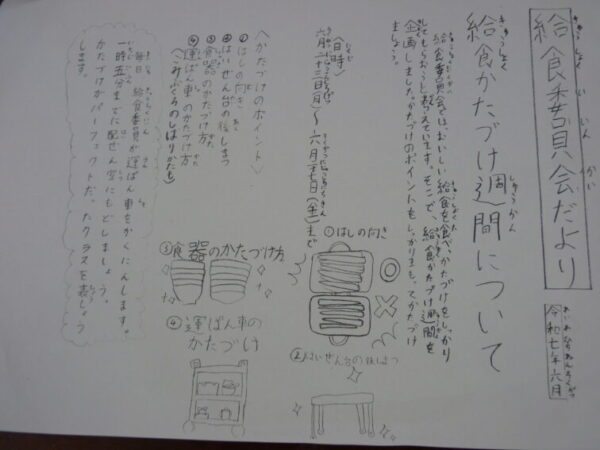 給食委員会だより
令和七年六月
給食かたづけ週間について
給食委員会では、おいしい給食を食べ、かたづけをしっかり
してもらおうと考えています。そこで、給食かたづけ週間を
企画しました。かたづけのポイントをしっかりまもってかたづけ
ましょう。
〈日時〉
六月二十三日(月)〜六月二十七日(金)まで
〈かたづけのポイント〉
①はしの向き
②はいぜん台の後しまつ
③食器のかたづけ方
④運ぱん車のかたづけ方
(ごみぶくろのしばりかたも)
①はしの向き
②はいぜん台の後しまつ
③食器のかたづけ方
④運ぱん車の
かたづけ
毎日、給食委員が運ぱん車をかくにんします。
一時五分までに配ぜん室にもどしましょう。
かたづけがパーフェクトだったクラスを表しょう
します。